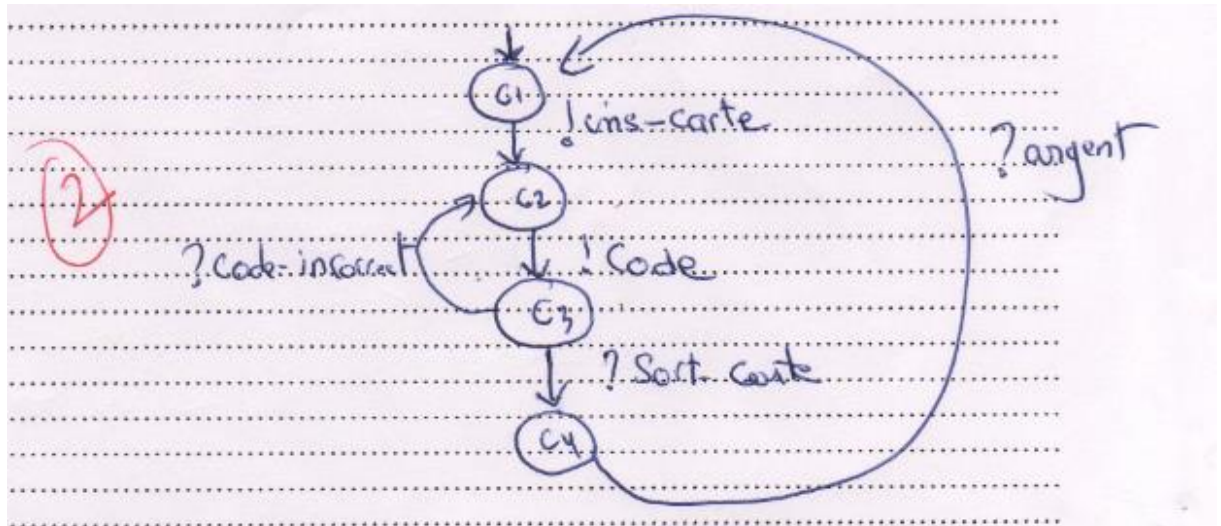 C1
! ins-carte
? argent
2
C2
? Code-incorrect
! Code
C3
? Sort-carte
C4